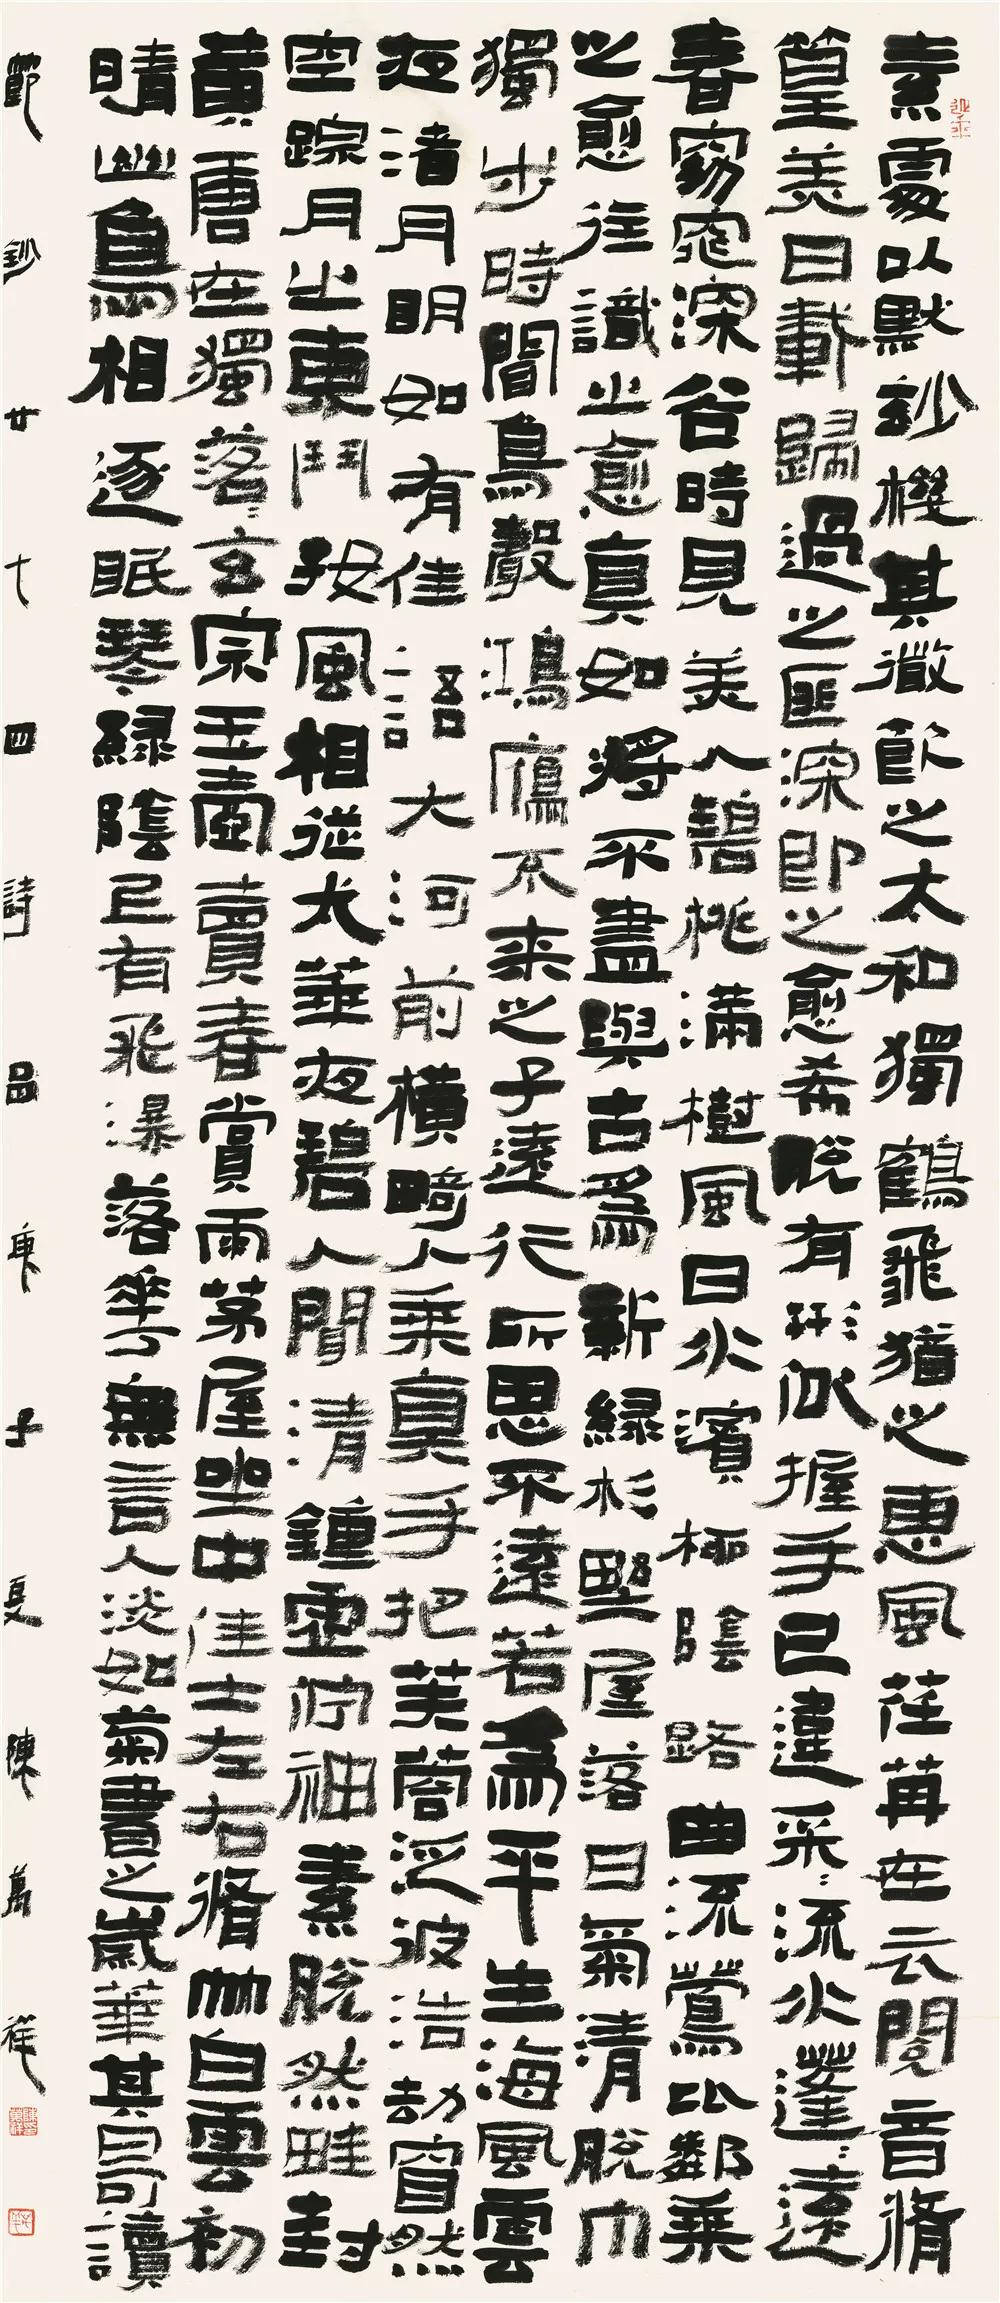 素處以默妙機其微飲之太和獨鶴飛猶之惠風荏苒在衣閱音脩
篁美曰載歸過之匪深即之愈希脫有形似握手已違采采流水蓬蓬遠
春窈窕深谷時見美人碧桃滿樹風日水濱柳陰路曲流鶯比鄰乘
之愈往識之愈真如將不盡與古為新綠杉野屋落日氣清脫巾
獨步時聞鳥聲鴻鴈不來之子遠行所思不遠若為平生海風碧雲
夜渚月明如有佳語大河前橫畸人乘真手把芙蓉泛波浩劫窅然
空蹤月出東斗好風相從太華夜碧人聞清鐘虛佇神素脫然畦封
黃唐在獨落落玄宗玉壺賣春賞雨茅屋坐中佳士左右脩竹白雲初
晴幽鳥相逐眠琴綠陰上有飛瀑落花無言人淡如菊書之歲華其曰可讀
節鈔廿十四詩品庚子夏陳萬祥